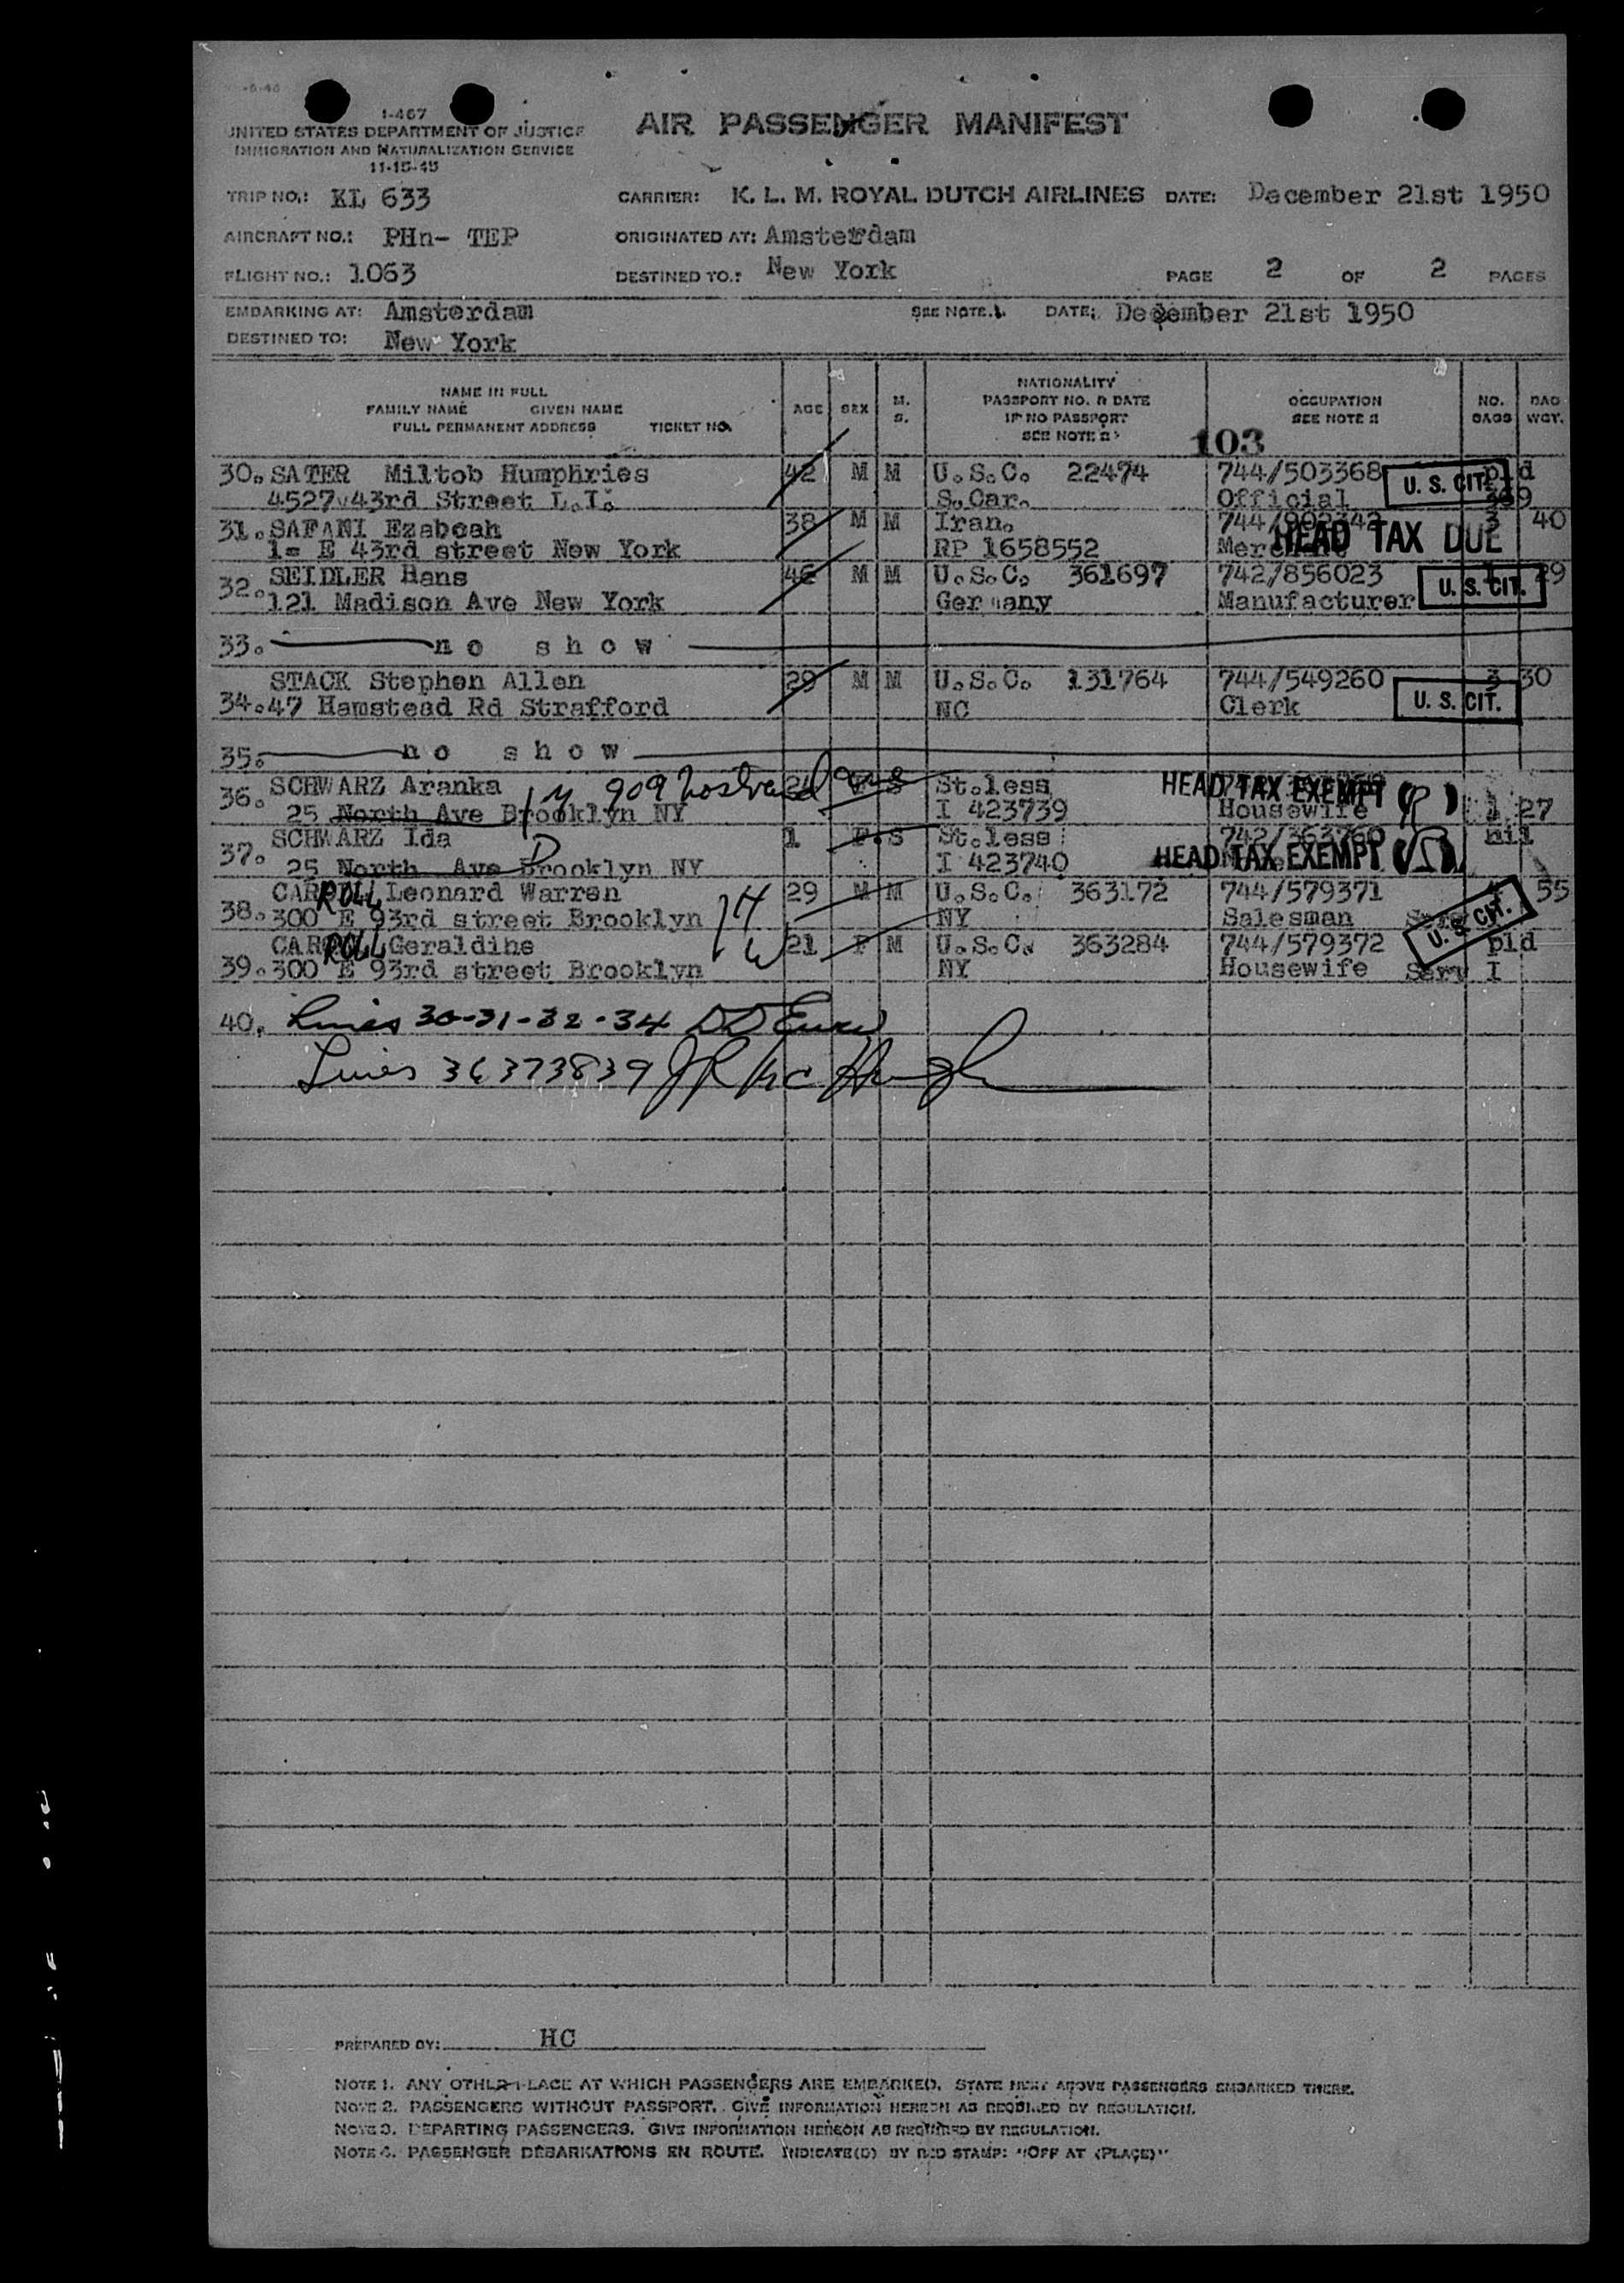 1-467
UNITED STATES DEPARTMENT OF JUSTICE
IMMIGRATION AND NATURALIZATION SERVICE
11-15-45
AIR PASSENGER MANIFEST
TRIP NO.: KL 633 CARRIER: K. L. M. ROYAL DUTCH AIRLINES DATE: December 21st 1950
AIRCRAFT NO.: PHn- TEP ORIGINATED AT: Amsterdam
FLIGHT NO.: 1063 DESTINED TO.: New York PAGE 2 OF 2 PAGES
EMBARKING AT: Amsterdam SEE NOTE.1. DATE: December 21st 1950
DESTINED TO: New York
NAME IN FULL
FAMILY NAME GIVEN NAME
FULL PERMANENT ADDRESS TICKET NO.
AGE SEX M. S.
NATIONALITY
PASSPORT NO. & DATE
IF NO PASSPORT
SEE NOTE 2
OCCUPATION
SEE NOTE 3
NO. BAGS BAG WGT.
103
30. SATER Miltob Humphries 42 M M U.S.C. 22474 744/503368 U. S. CIT.
4527 43rd Street L.I. S.Car. Official
31. SAFANI Ezabcah 38 M M Iran. 744/902342 3 40
1= E 43rd street New York RP 1658552 HEAD TAX DUE
32. SEIDLER Hans 46 M M U.S.C. 361697 742/856023 29
121 Madison Ave New York Germany Manufacturer U. S. CIT.
33. no show
STACK Stephen Allen 29 M M U.S.C. 131764 744/549260 3 30
34. 47 Hamstead Rd Strafford NC Clerk U. S. CIT.
35. no show
36. SCHWARZ Aranka 909 24 F S St.less HEAD TAX EXEMPT
25 North Ave Brooklyn NY I 423739 Housewife 1 27
37. SCHWARZ Ida 1 F S St.less 742/363760 nil
25 North Ave Brooklyn NY I 423740 HEAD TAX EXEMPT
38. CARROLL Leonard Warren 29 M M U.S.C. 363172 744/579371 55
300 E 93rd street Brooklyn NY Salesman U. S. CIT.
CARROLL Geraldihe 21 F M U.S.C. 363284 744/579372 pld
39. 300 E 93rd street Brooklyn NY Housewife Serv I
40. Lines 30-31-32-34
Lines 36373839 JR McHugh
PREPARED BY: HC
NOTE 1. ANY OTHER PLACE AT WHICH PASSENGERS ARE EMBARKED. STATE NEXT ABOVE PASSENGERS EMBARKED THERE.
NOTE 2. PASSENGERS WITHOUT PASSPORT. GIVE INFORMATION HEREON AS REQUIRED BY REGULATION.
NOTE 3. DEPARTING PASSENGERS. GIVE INFORMATION HEREON AS REQUIRED BY REGULATION.
NOTE 4. PASSENGER DEBARKATIONS EN ROUTE. INDICATE(D) BY RED STAMP: "OFF AT (PLACE)"